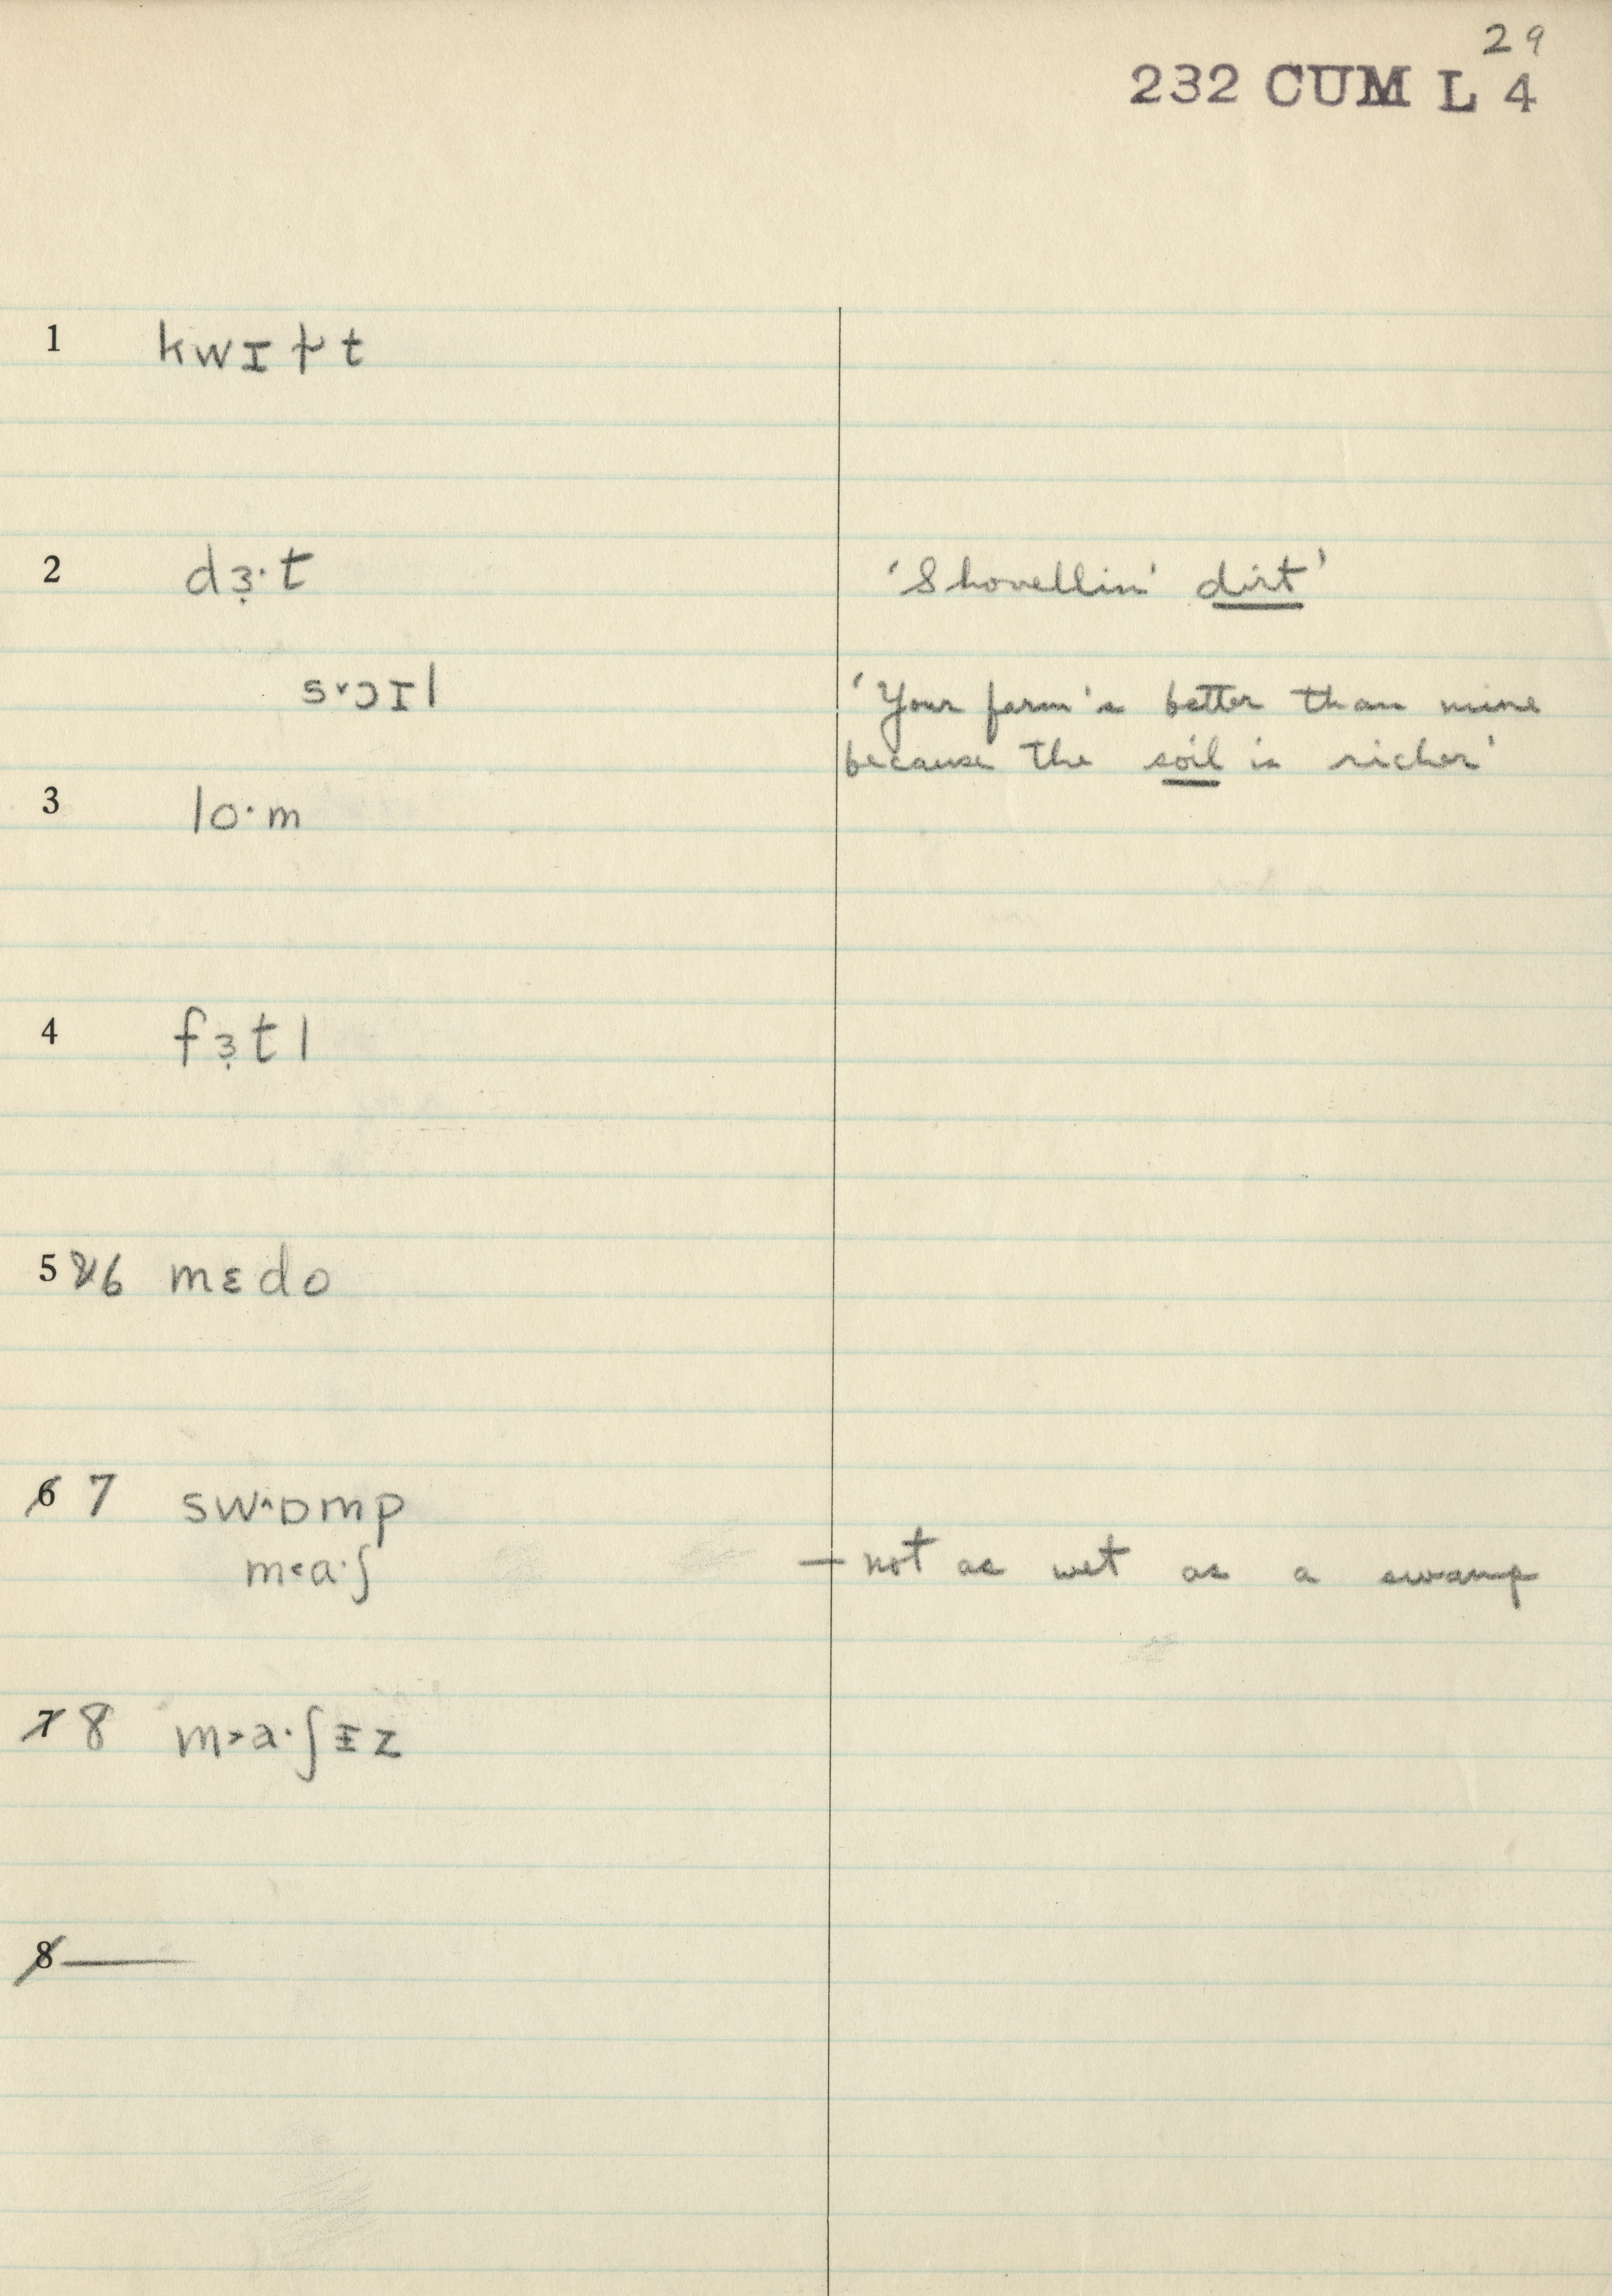 29
232 CUM L 4
1 kwɪɫt
2 dɜ̣·t 'Shovellin' dirt'
s˅ɔɪl 'Your farm's better than mine
because the soil is richer'
3 lo·m
4 fɜ̣tl
5 &6 mɛdo
6 7 sw˄ɒmp
m˂a·ʃ — not as wet as a swamp
7 8 m˃a·ʃɪz
8 —